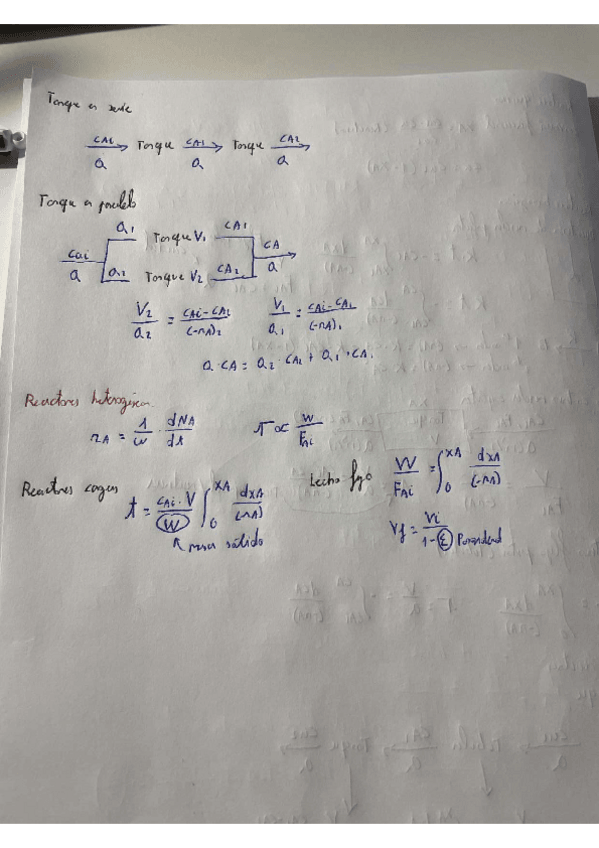 Torque en serie
CAi/Q → Torque CA1/Q → Torque CA2/Q →
Torque en paralelo
Q1 Torque V1 CA1
Cai/Q CA/Q
Q2 Torque V2 CA2
V2/Q2 = (CAi-CA2)/(-rA)2 V1/Q1 = (CAi-CA1)/(-rA)1
Q·CA = Q2·CA2 + Q1·CA1
Reactores heterogéneos
rA = 1/w · dNA/dt τ ∝ W/FAi
Reactores cargas t = (CAi·V)/W ∫0^XA dXA/(-rA)
↖ masa sólido
Lecho fijo W/FAi = ∫0^XA dXA/(-rA)
Vf = Vi/(1-ε) Porosidad